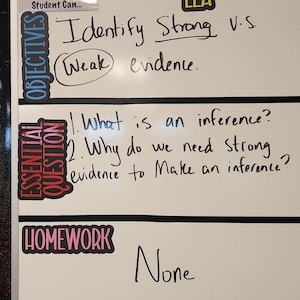 Student Can...
ELA
OBJECTIVES
Identify Strong v.s.
Weak evidence.
ESSENTIAL
QUESTION
1. What is an inference?
2. Why do we need strong
evidence to Make an inference?
HOMEWORK
None